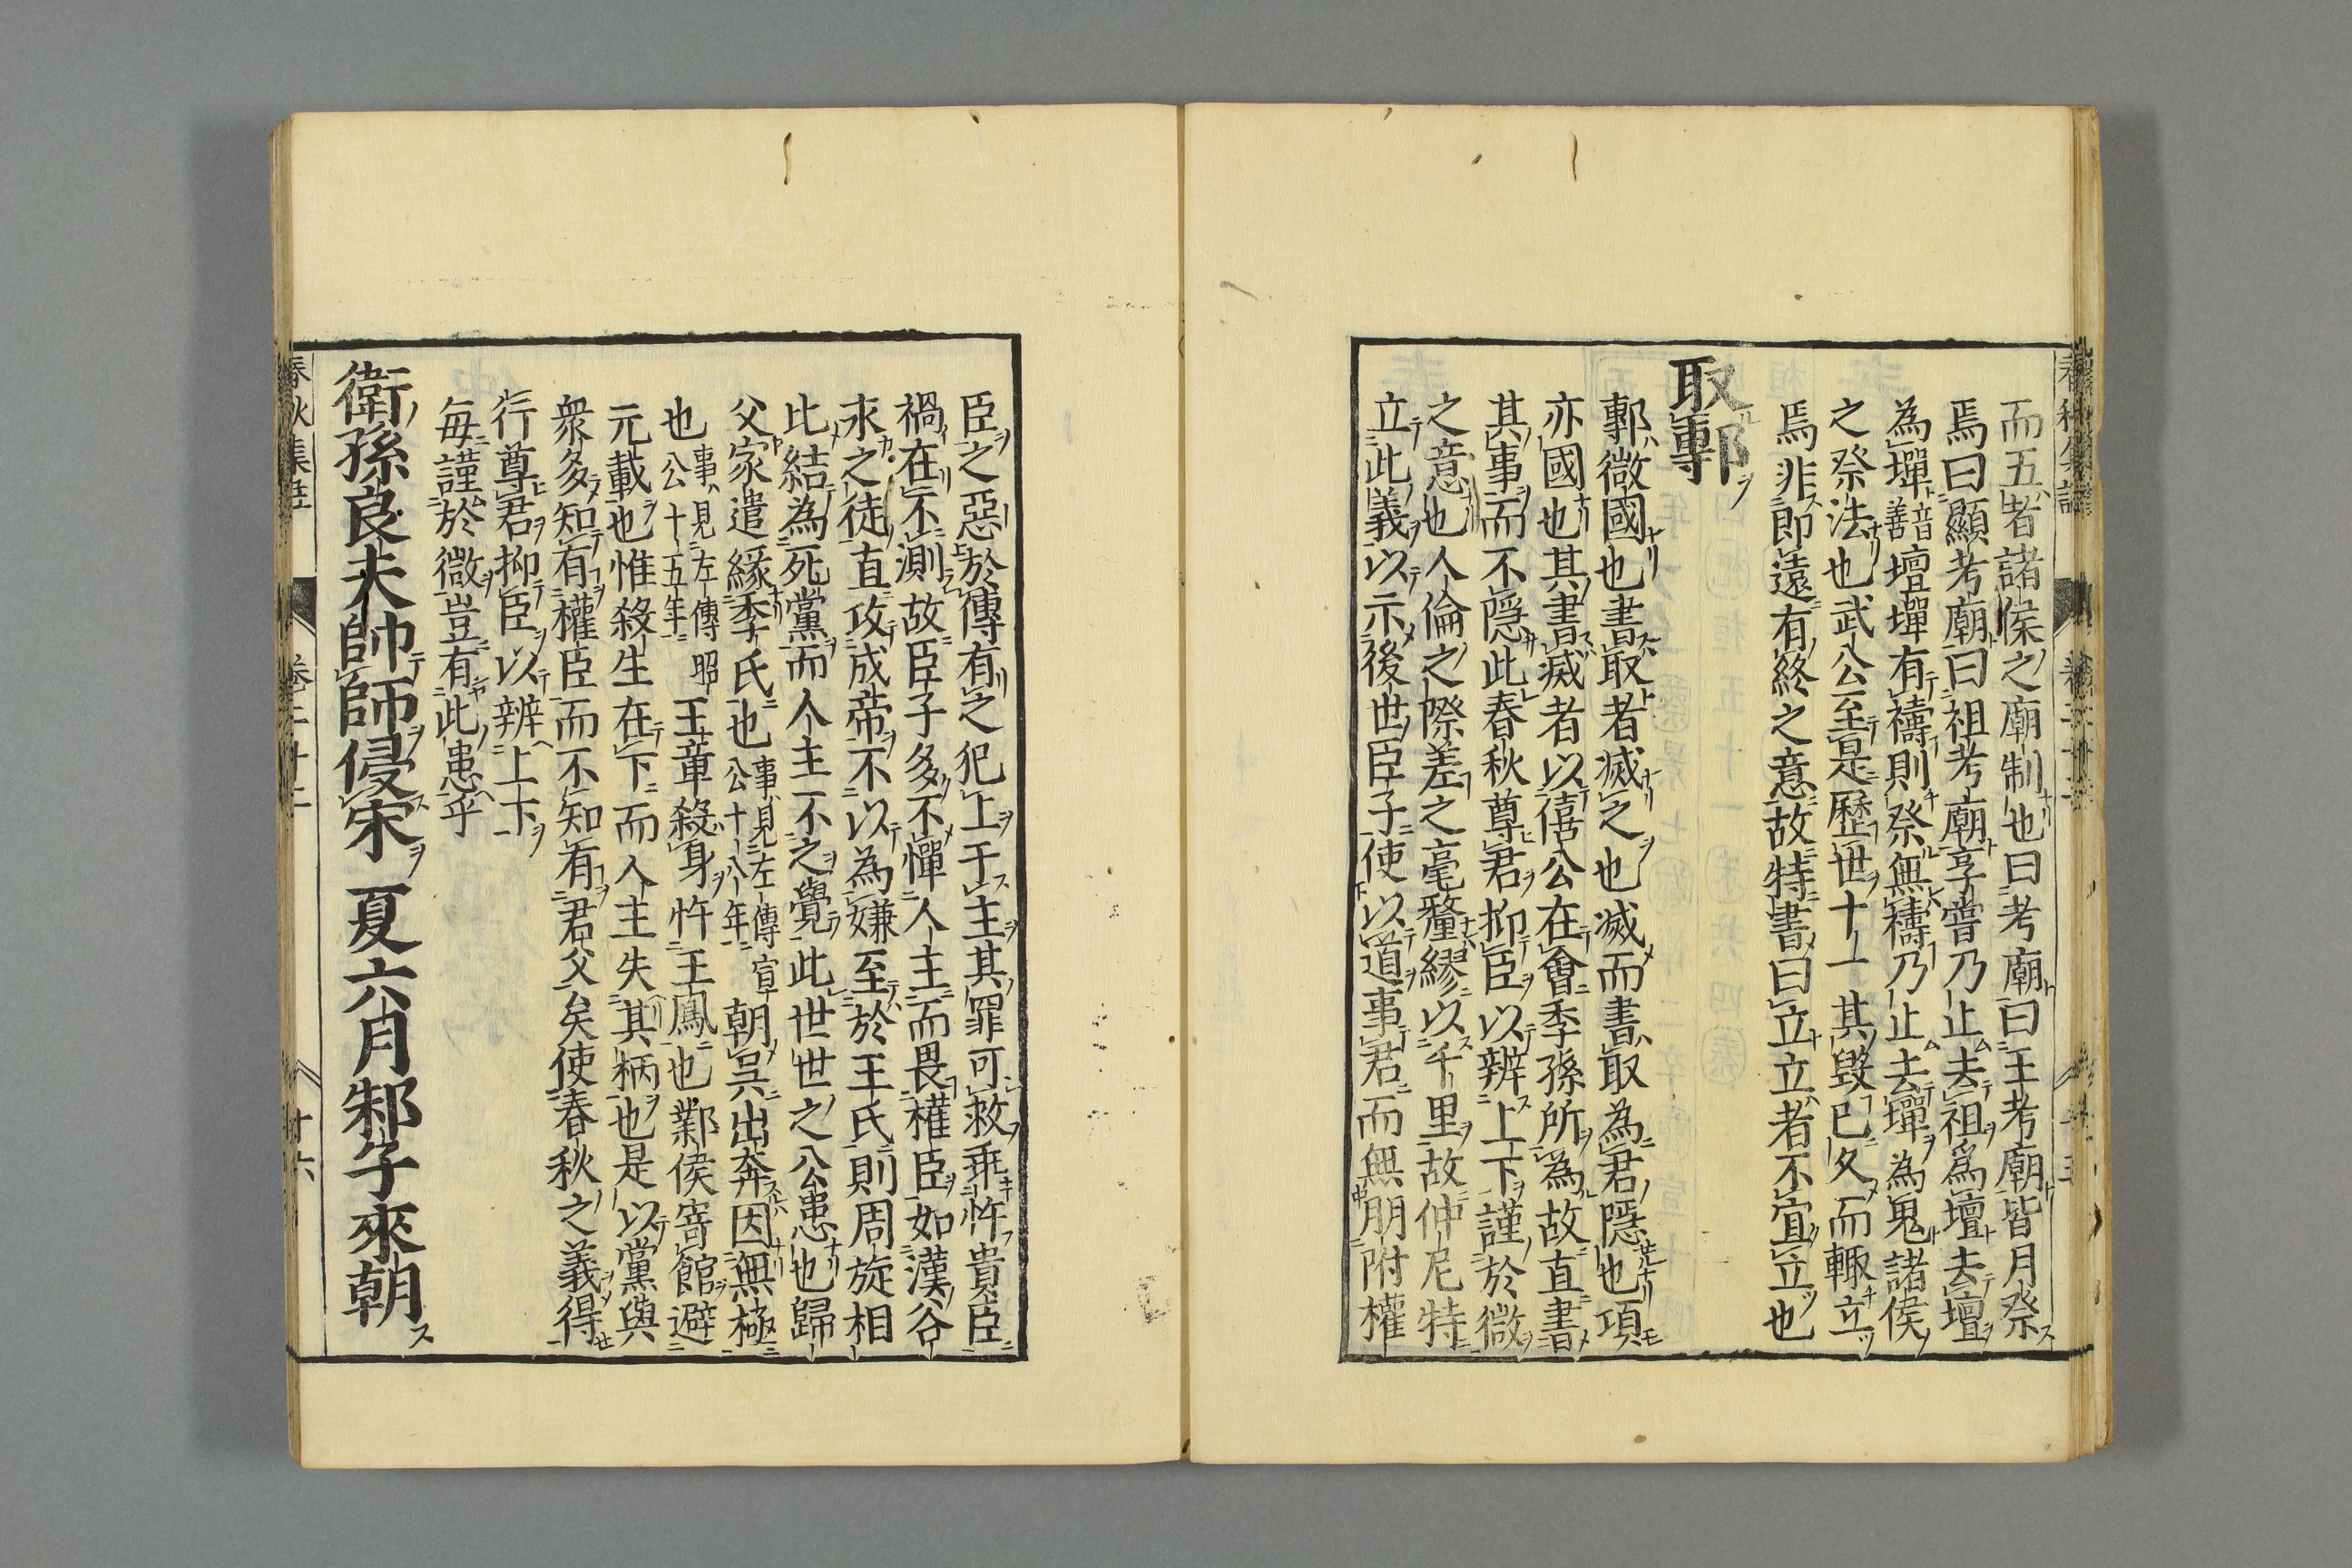 而五者諸侯之廟制也曰考廟曰王考廟皆月祭
焉曰顯考廟曰祖考廟享嘗乃止去祖爲壇去壇
為墠音善壇墠有禱則祭無禱乃止去墠為鬼諸侯
之祭法也武公至是歷世十一其毀已久而輙立
焉非即遠有終之意故特書曰立立者不宜立也
取鄟
鄟微國也書取者滅之也滅而書取為君隱也項
亦國也其書滅者以僖公在會季孫所為故直書
其事而不隠此春秋尊君抑臣以辨上下謹於微
之意也人倫之際差之毫釐繆以千里故仲尼特
立此義以示後世臣子使以道事君而無朋附權
臣之惡於傳有之犯上干主其罪可救乖忤貴臣
禍在不測故臣子多不憚人主而畏權臣如漢谷
永之徒直攻成帝不以為嫌至於王氏則周旋相
比結為死黨而人主不之覺此世世之公患也歸
父家遣緣季氏也事見左傳宣公十八年朝吳出奔因無極
也事見左傳昭公十五年王章殺身忤王鳳也鄴侯寄館避
元載也惟殺生在下而人主失其柄也是以黨與
衆多知有權臣而不知有君父矣使春秋之義得
行尊君抑臣以辨上下
每謹於微豈有此患乎
衛孫良夫帥師侵宋 夏六月邾子來朝
卷二十二
十六